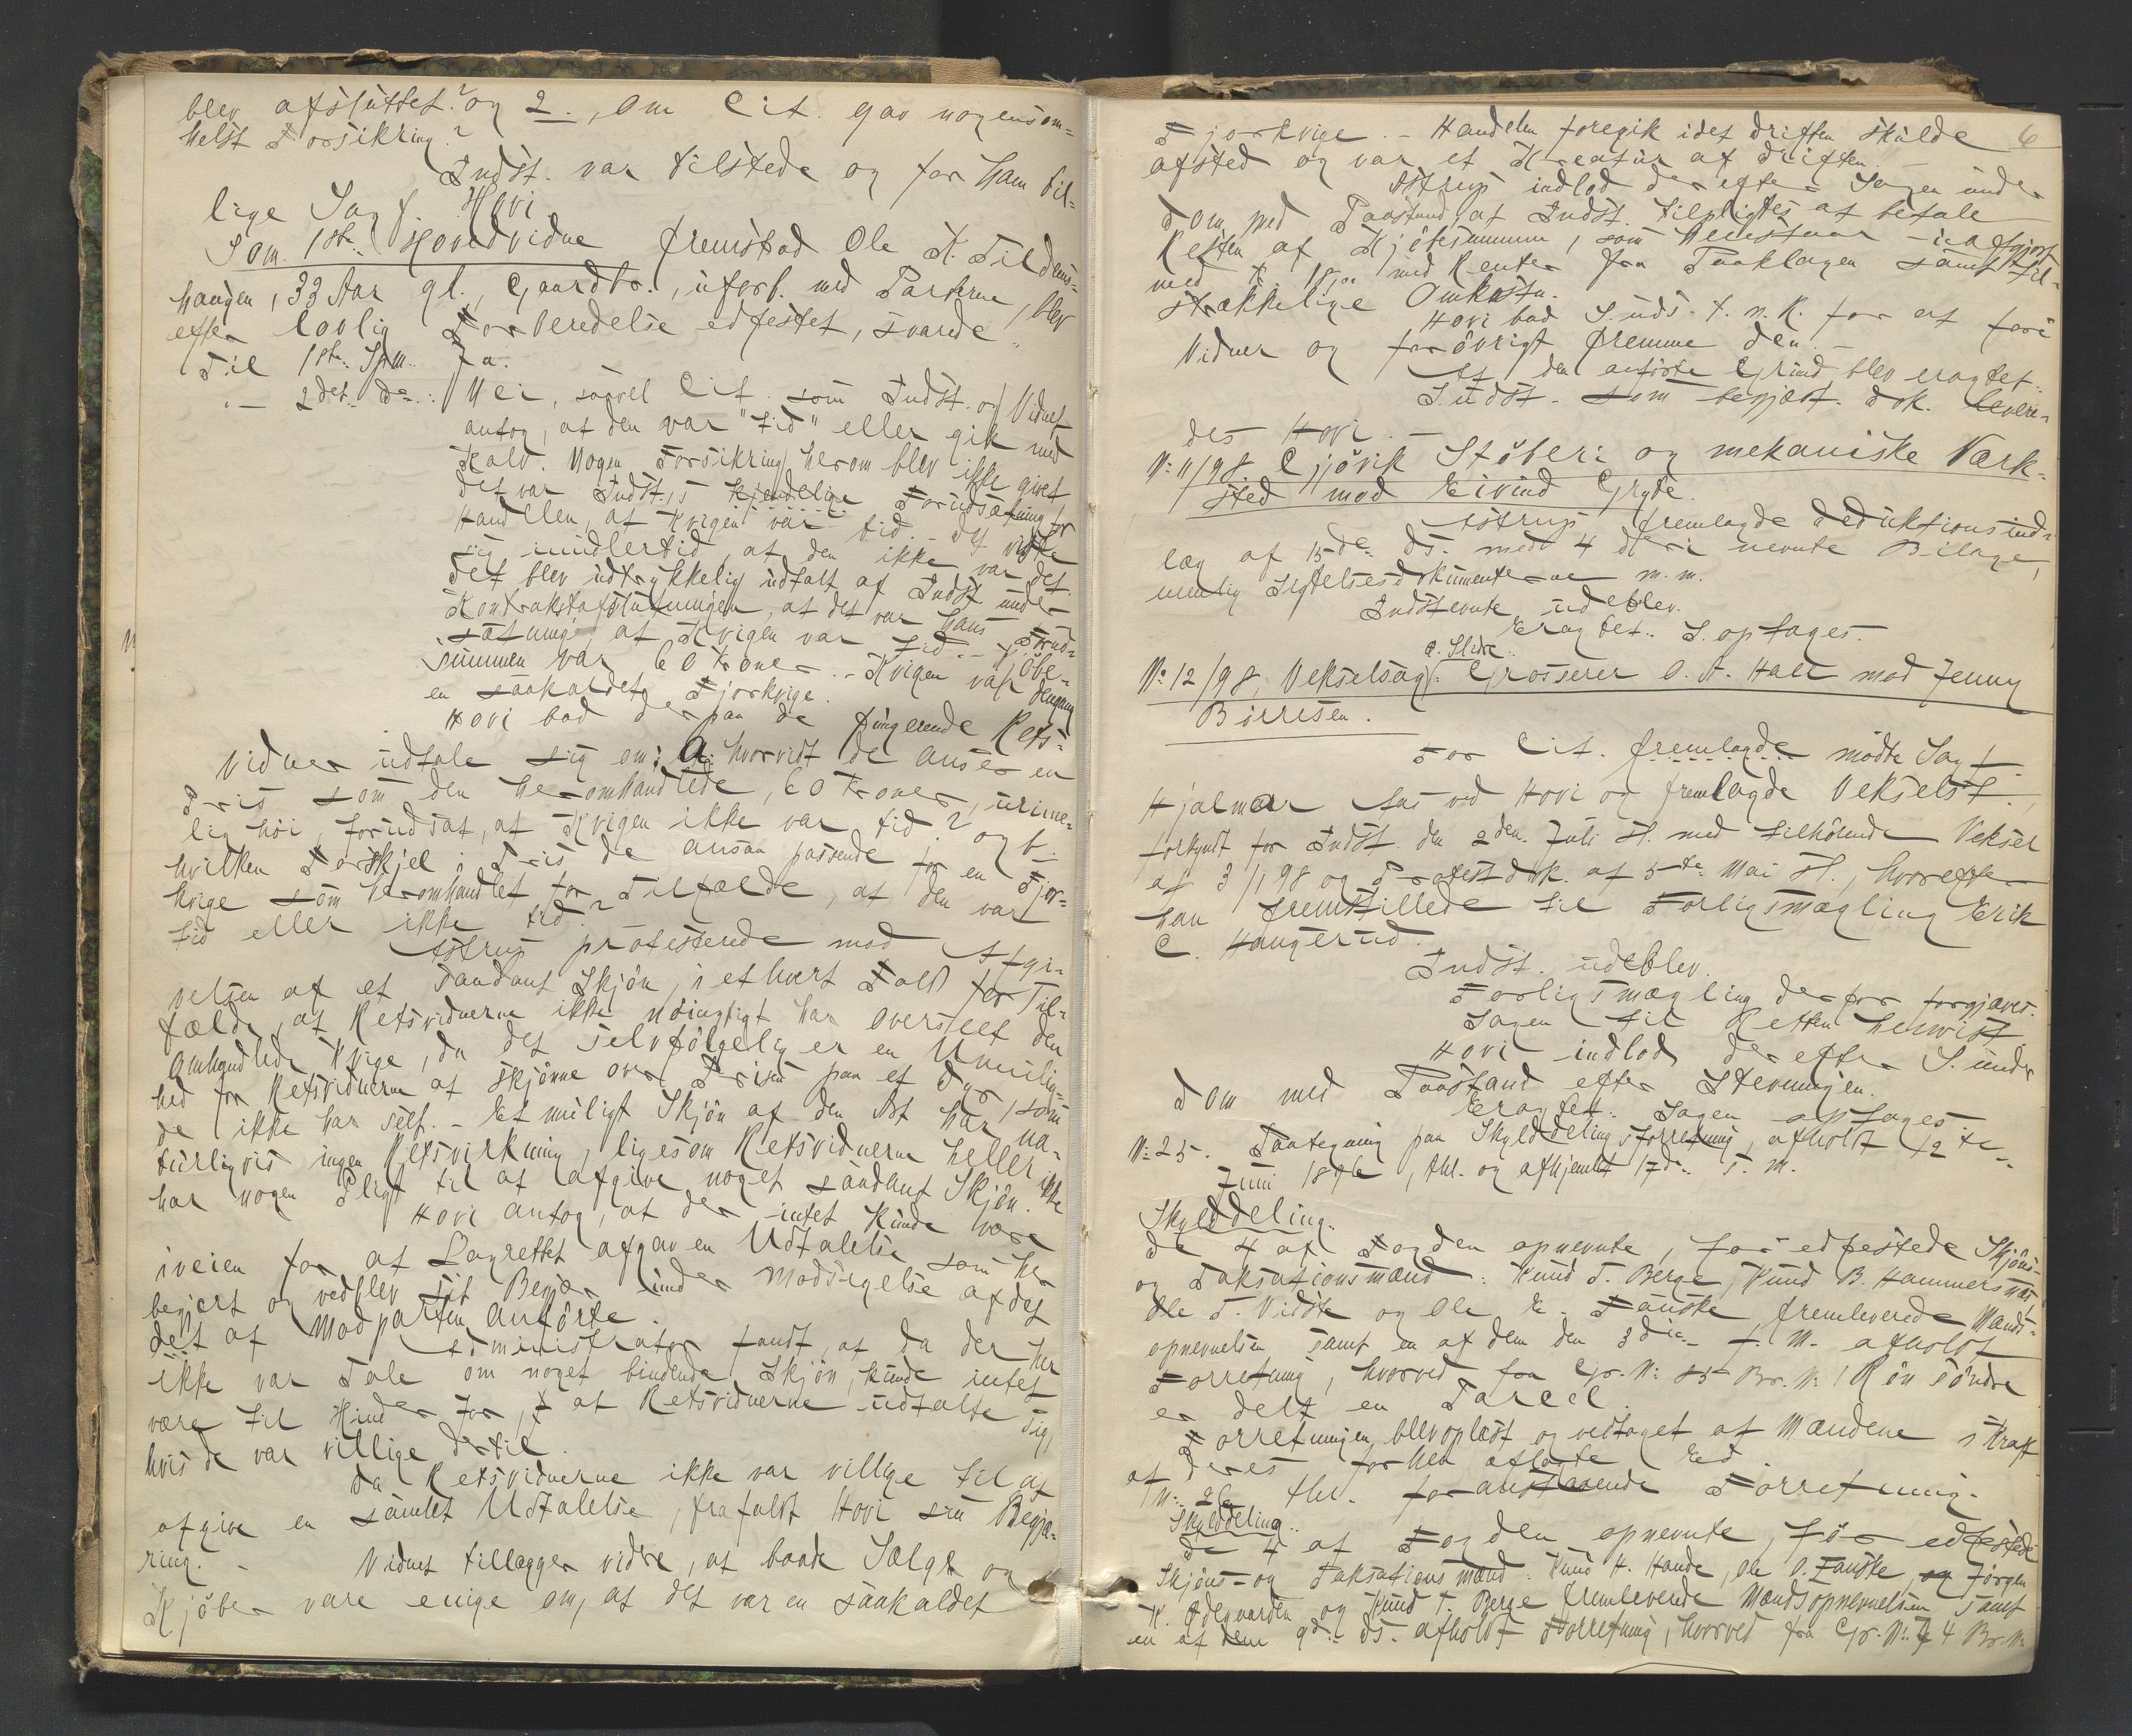 blev afsluttet? og 2., om Cit. gav nogensom-
helst Forsikring?
Indst. var tilstede og for ham til-
lige Sagf. Hovi.
Som 1ste Hovedvidne fremstod Ole K. Fildems-
haugen, 33 Aar gl., Gaardbr., uforb. med Parterne, blev
efter lovlig Forberedelse edfestet, svarede
Til 1ste Spm. Ja.
" — 2det do.: Nei, saavel Cit. som Indst. og Vidnet
antog, at den var "tid" eller gik med
Kalv. Nogen Forsikring herom blev ikke givet
det var Indst.s kjendelige Forudsætning for
Handelen, at Kvigen var tid. - Det viste
sig imidlertid, at den ikke var det.
Det blev udtrykkelig udtalt af Indst. under
Kontraktafslutningen, at det var hans Forud-
sætning, at Kvigen var tid. - Kjøbe-
summen var 60 Kroner. - Kvigen var dengang
en saakaldet Fjorkvige.
Hovi bad derpaa de fungerende Rets-
vidner udtale sig om: a. hvorvidt de anser en
Pris som den heromhandlede, 60 Kroner, urime-
lig høi, forudsat, at Kvigen ikke var tid? og b.
hvilken Forskjel i Pris de ansaa passende for en Fjor-
kvige som heromhandlet for Tilfælde, at den var
tid eller ikke tid?
Astrup protesterede mod Afgi-
velsen af et saadant Skjøn, i ethvert Fald for Til-
fælde, at Retsvidnerne ikke nøiagtigt har overseet den
omhandlede Kvige, da det selvfølgelig er en Umulig-
hed for Retsvidnerne at skjønne over Prisen paa et Dyr, som
de ikke har seet. - Et muligt Skjøn af den Art har na-
turligvis ingen Retsvirkning, ligesom Retsvidnerne heller ikke
har nogen Pligt til at afgive noget saadant Skjøn.
Hovi antog, at der intet kunde være
iveien for at Lagrettet afgav en Udtalelse som her
begjært og vedblev sit Begjær under Modsigelse af det
det af Modparten Anførte.
Administrator fandt, at da der her
ikke var Tale om noget bindende Skjøn, kunde intet
være til Hinder for, at Retsvidnerne udtalte sig,
hvis de var villige dertil.
Da Retsvidnerne ikke var villige til at
afgive en samlet Udtalelse, frafaldt Hovi sin Begjæ-
ring. -
Vidnet tillægger videre, at baade Sælger og
Kjøber vare enige om, at det var en saakaldet
6
Fjorkvige. - Handelen foregik idet Driften skulde
afsted og var et Kreatur af Driften.
Astrup indlod derefter Sagen under
Dom med Paastand, at Indst. tilpligtes at betale
Resten af Kjøbesummen, som henstaar uafgjort
med K. 18,00 med Renter fra Paaklagen samt til-
strækkelige Omkostn.
Hovi bad S. uds. t. n. R. for at føre
Vidner og forøvrigt fremme den. -
Af den anførte Grund blev eragtet:
S. udst. som begjært. Dok. levere-
des Hovi. -
N: 11/98. Gjøvik Støberi og mekaniske Værk-
sted mod Eivind Gryde.
Astrup fremlagde Deduktionsind-
læg af 15de ds. med 4 deri nevnte Bilage,
nemlig Sigtelsesdokumenterne m. m.
Indstevnte udeblev.
Eragtet: S. optages.
C. Slidre.
N: 12/98, Vekselsag: Grosserer O. A. Hall mod Jenny
Børresen.
For Cit. fremlagde mødte Sagf.
Hjalmar Aas ved Hovi og fremlagde Vekselst.,
forkyndt for Indst. den 2den Juli sl. med tilhørende Veksel
af 3/1 98 og Protestdok. af 5te Mai sl., hvorefter
han fremstillede til Forligsmægling Erik
C. Haugerud.
Indst. udeblev.
Forligsmægling derfor forgjæves.
Sagen til Retten henvist.
Hovi indlod derefter S. under
Dom med Paastand efter Stevningen.
Eragtet: Sagen optages.
N: 25. Paategning paa Skylddelingsforretning, afholdt 12te
Juni 1896, thl. og afhjemlet 17de s. M.
Skylddeling.
De 4 af Fogden opnevnte, før edfestede Skjøns-
og Taksationsmænd: Knud T. Berge, Knud B. Hammersnæs,
Ole T. Vidste og Ole E. Fauske fremleverede Mands-
opnevnelsen samt en af dem den 3die f. M. afholdt
Forretning, hvorved fra Gr. N: 85 Br. N: 1 Røn søndre
er delt en Parcel.
Forretningen blev oplæst og vedtaget af Mændene i Kraft
af deres forhen aflagte Ed.
N: 26. thl. foranstaaende Forretning.
Skylddeling.
De 4 af Fogden opnevnte, før edfestede
Skjøns- og Taksationsmænd: Knud H. Hande, Ole O. Fauske, og Jørgen
K. Ødegaarden og Knud T. Berge fremleverede Mandsopnevnelsen samt
en af dem 9de ds. afholdt Forretning, hvorved fra Gr. N: 74 Br. N: